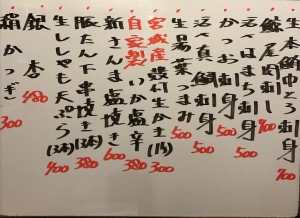 生本鮪中とろ刺身 700
鯨尾肉刺し 700
活〆はまち刺身 500
かつお刺身 500
活〆真鯛刺身 500
生湯葉つまみ 500
宮城産殻付生かき(1ケ) 300
自家製いか塩辛 380
新さんま塩焼き 600
豚たん下串焼き(3本) 380
生ししゃも天ぷら(3本) 400
銀杏 480
絹かつぎ 300